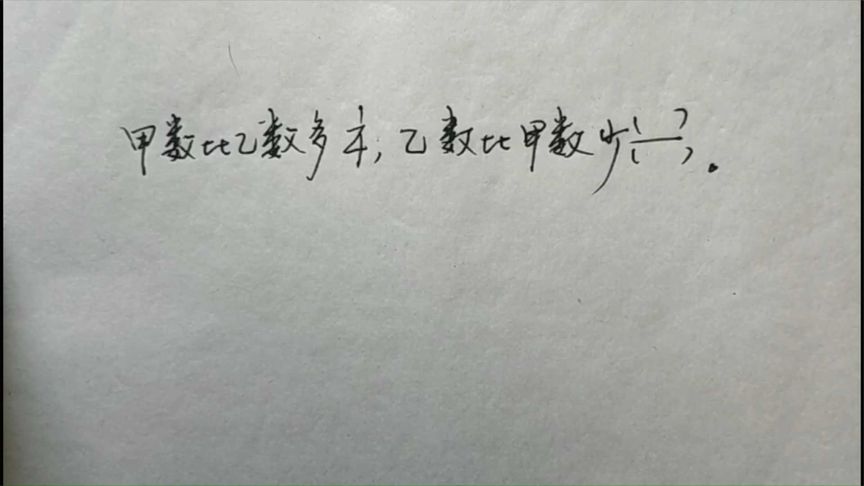 甲数比乙数多1/4，乙数比甲数少( )/( )。